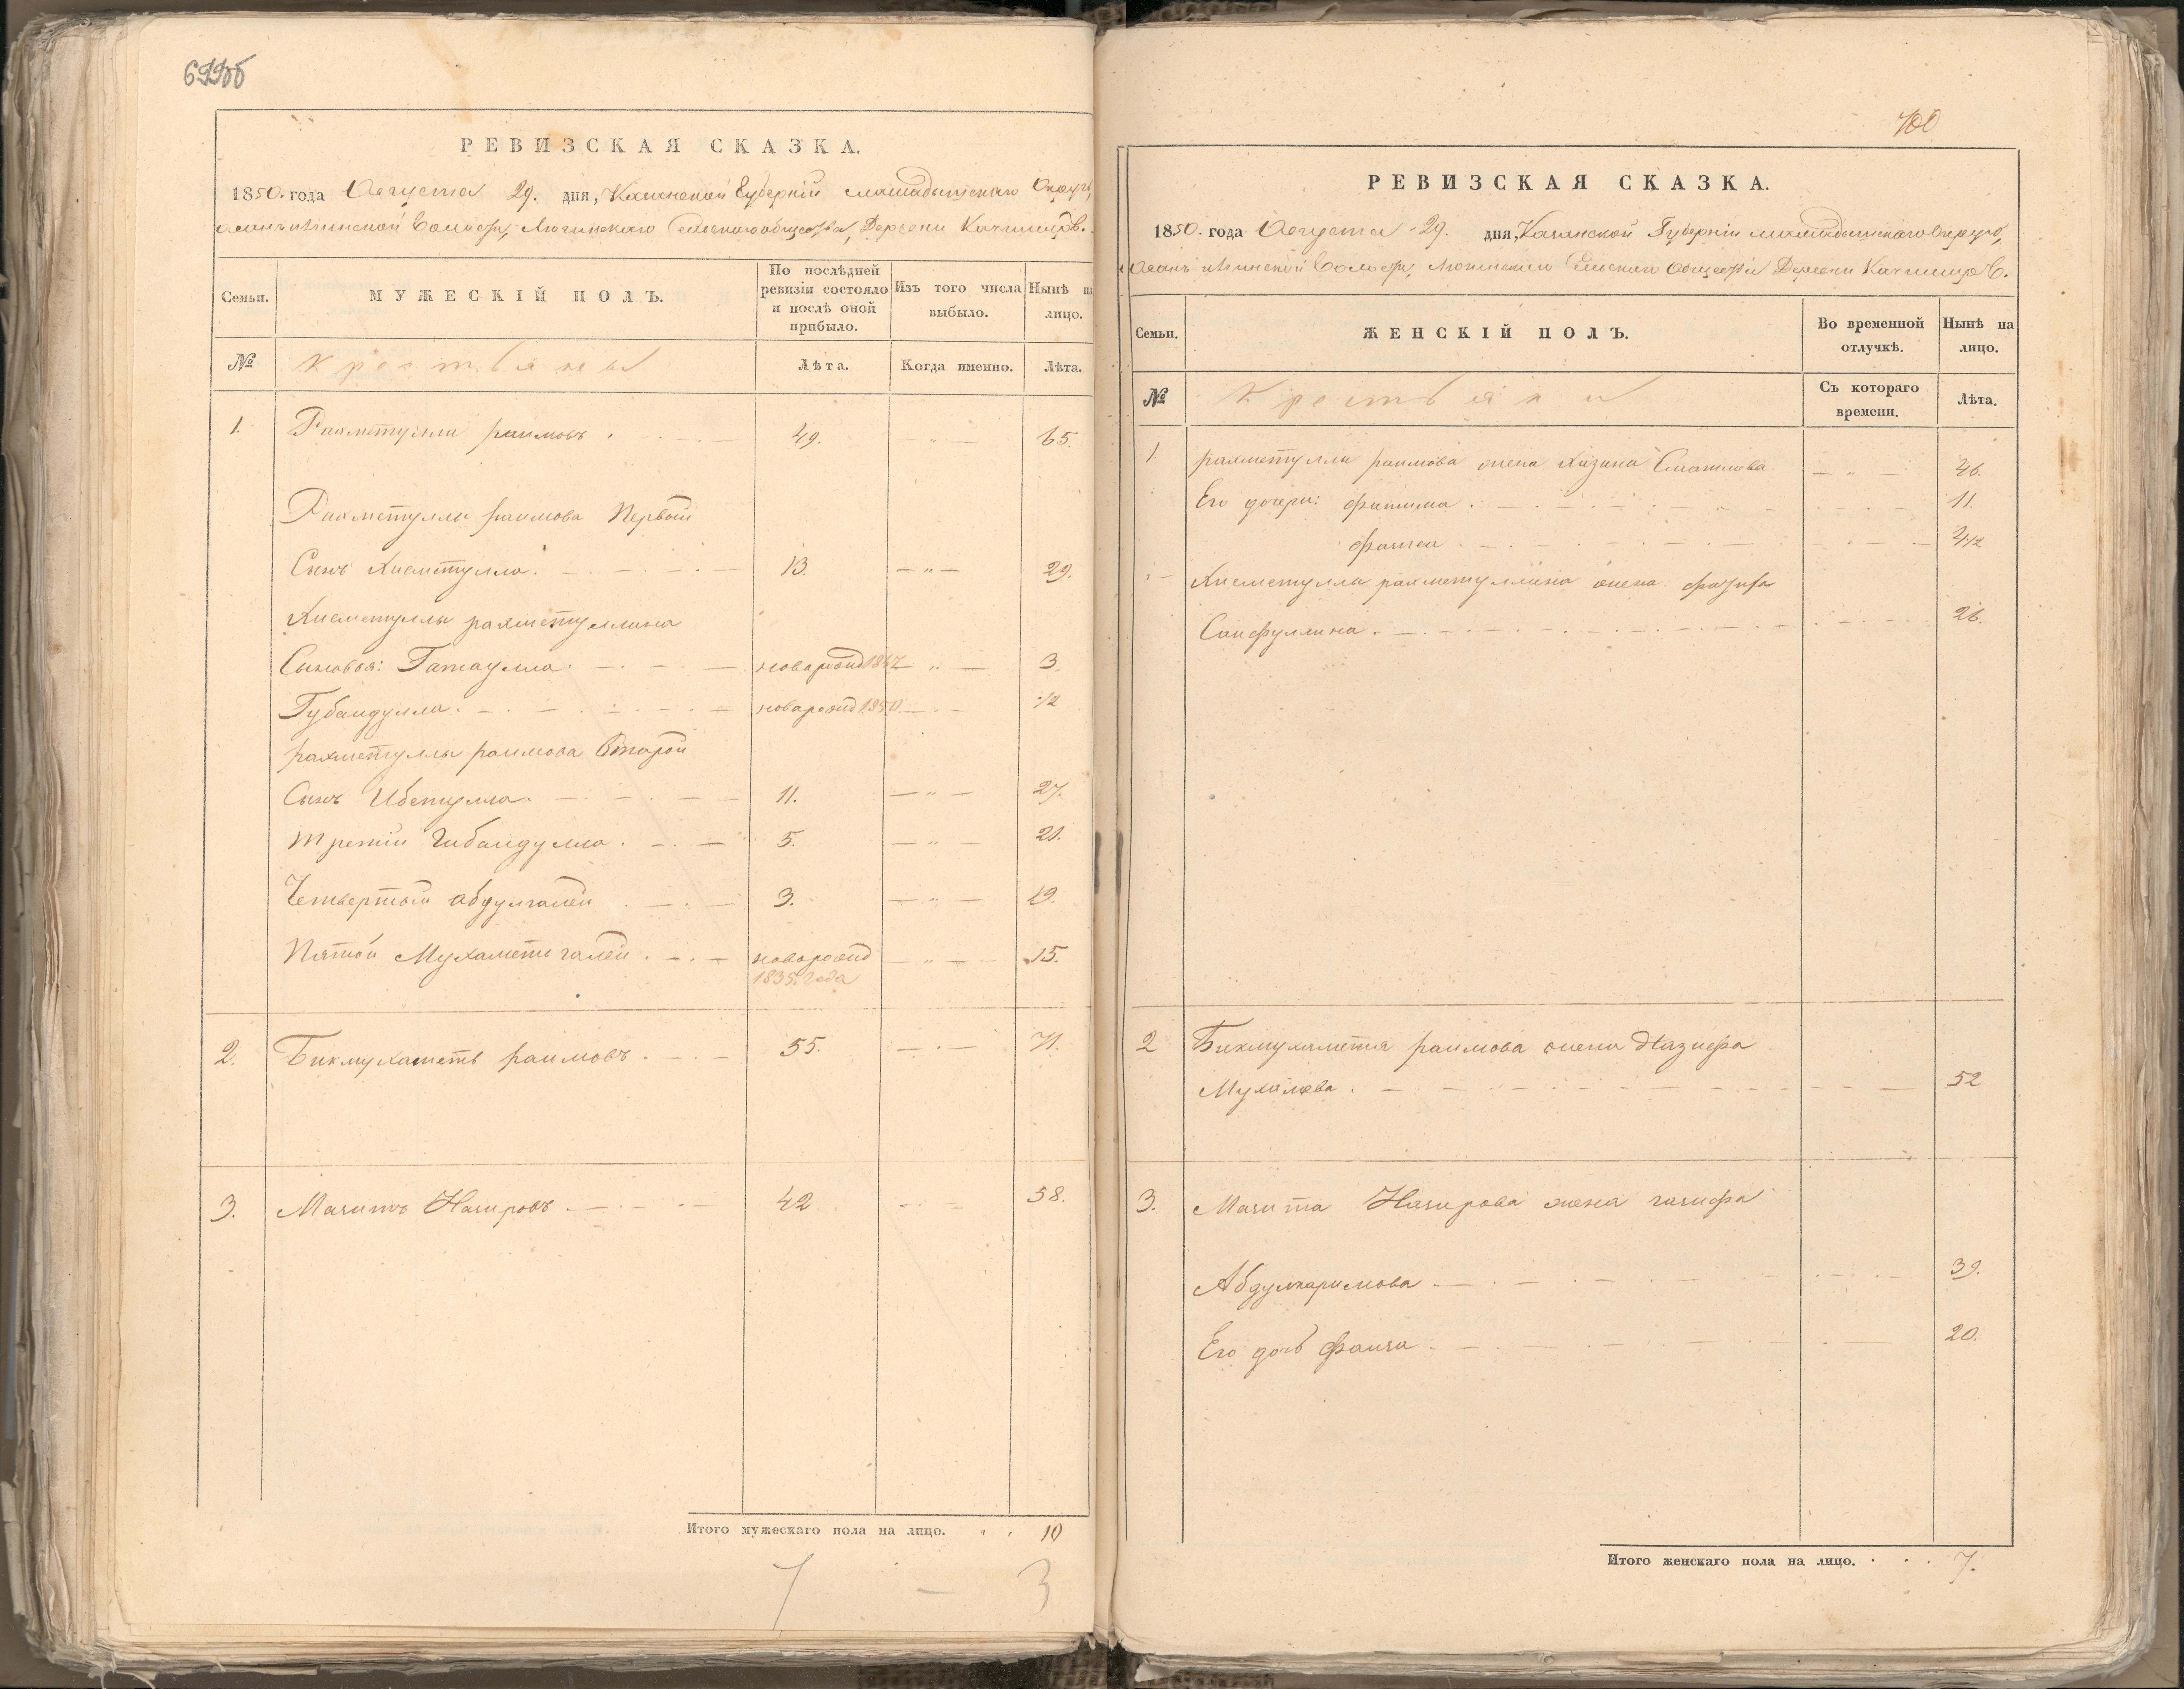 699об
РЕВИЗСКАЯ СКАЗКА.
1850. года Августа 29. дня, Казанской Губерніи мамадышскаго Округа,
Волости, Сельскаго общества, Деревни
Семьи.
МУЖЕСКІЙ ПОЛЪ.
По послѣдней ревизіи состояло и послѣ оной прибыло.
Изъ того числа выбыло.
Нынѣ на лицо.
№
Крестьяны
Лѣта.
Когда именно.
Лѣта.
1. Рахметулла раимовъ . 49. — „ — 65.
Рахметуллы раимова Первый
Сынъ Хисметулла. 13. — „ — 29.
Хисметуллы рахметуллина
Сыновья: Гатаулла. новорожд 1847 — „ — 3.
Губайдулла. новорожд 1850. 1/2
рахметуллы раимова Второй
Сынъ Ибетулла. 11. — „ — 27.
третій Гибайдулла. 5. — „ — 21.
Четвертый абдулгалей 3. — „ — 19.
Пятой Мухаметьгалей. новорожд — „ — 15.
1835. года
2. Бикмухаметь раимовъ. 55. — 71.
3. Магитъ Нагировъ. 42 58.
Итого мужескаго пола на лицо. 10
7 — 3
700
РЕВИЗСКАЯ СКАЗКА.
1850. года Августа 29. дня, Казанской Губерніи мамадышскаго Округа,
Волости, Сельскаго Общества Деревни
Семьи.
ЖЕНСКІЙ ПОЛЪ.
Во временной отлучкѣ.
Нынѣ на лицо.
№
Крестьяни
Съ котораго времени.
Лѣта.
1 рахметуллы раимова жена Хазина Смаилова — „ — 46.
Его дочери: фатима. 11.
4 1/2
Хисметуллы рахметуллина жена
Сайфуллина. 26.
2 Бикмухаметя раимова жена Назифа
52
3. Магита Нагирова жена гагифа
Абдулкаримова 39.
Его дочь 20.
Итого женскаго пола на лицо. 7.